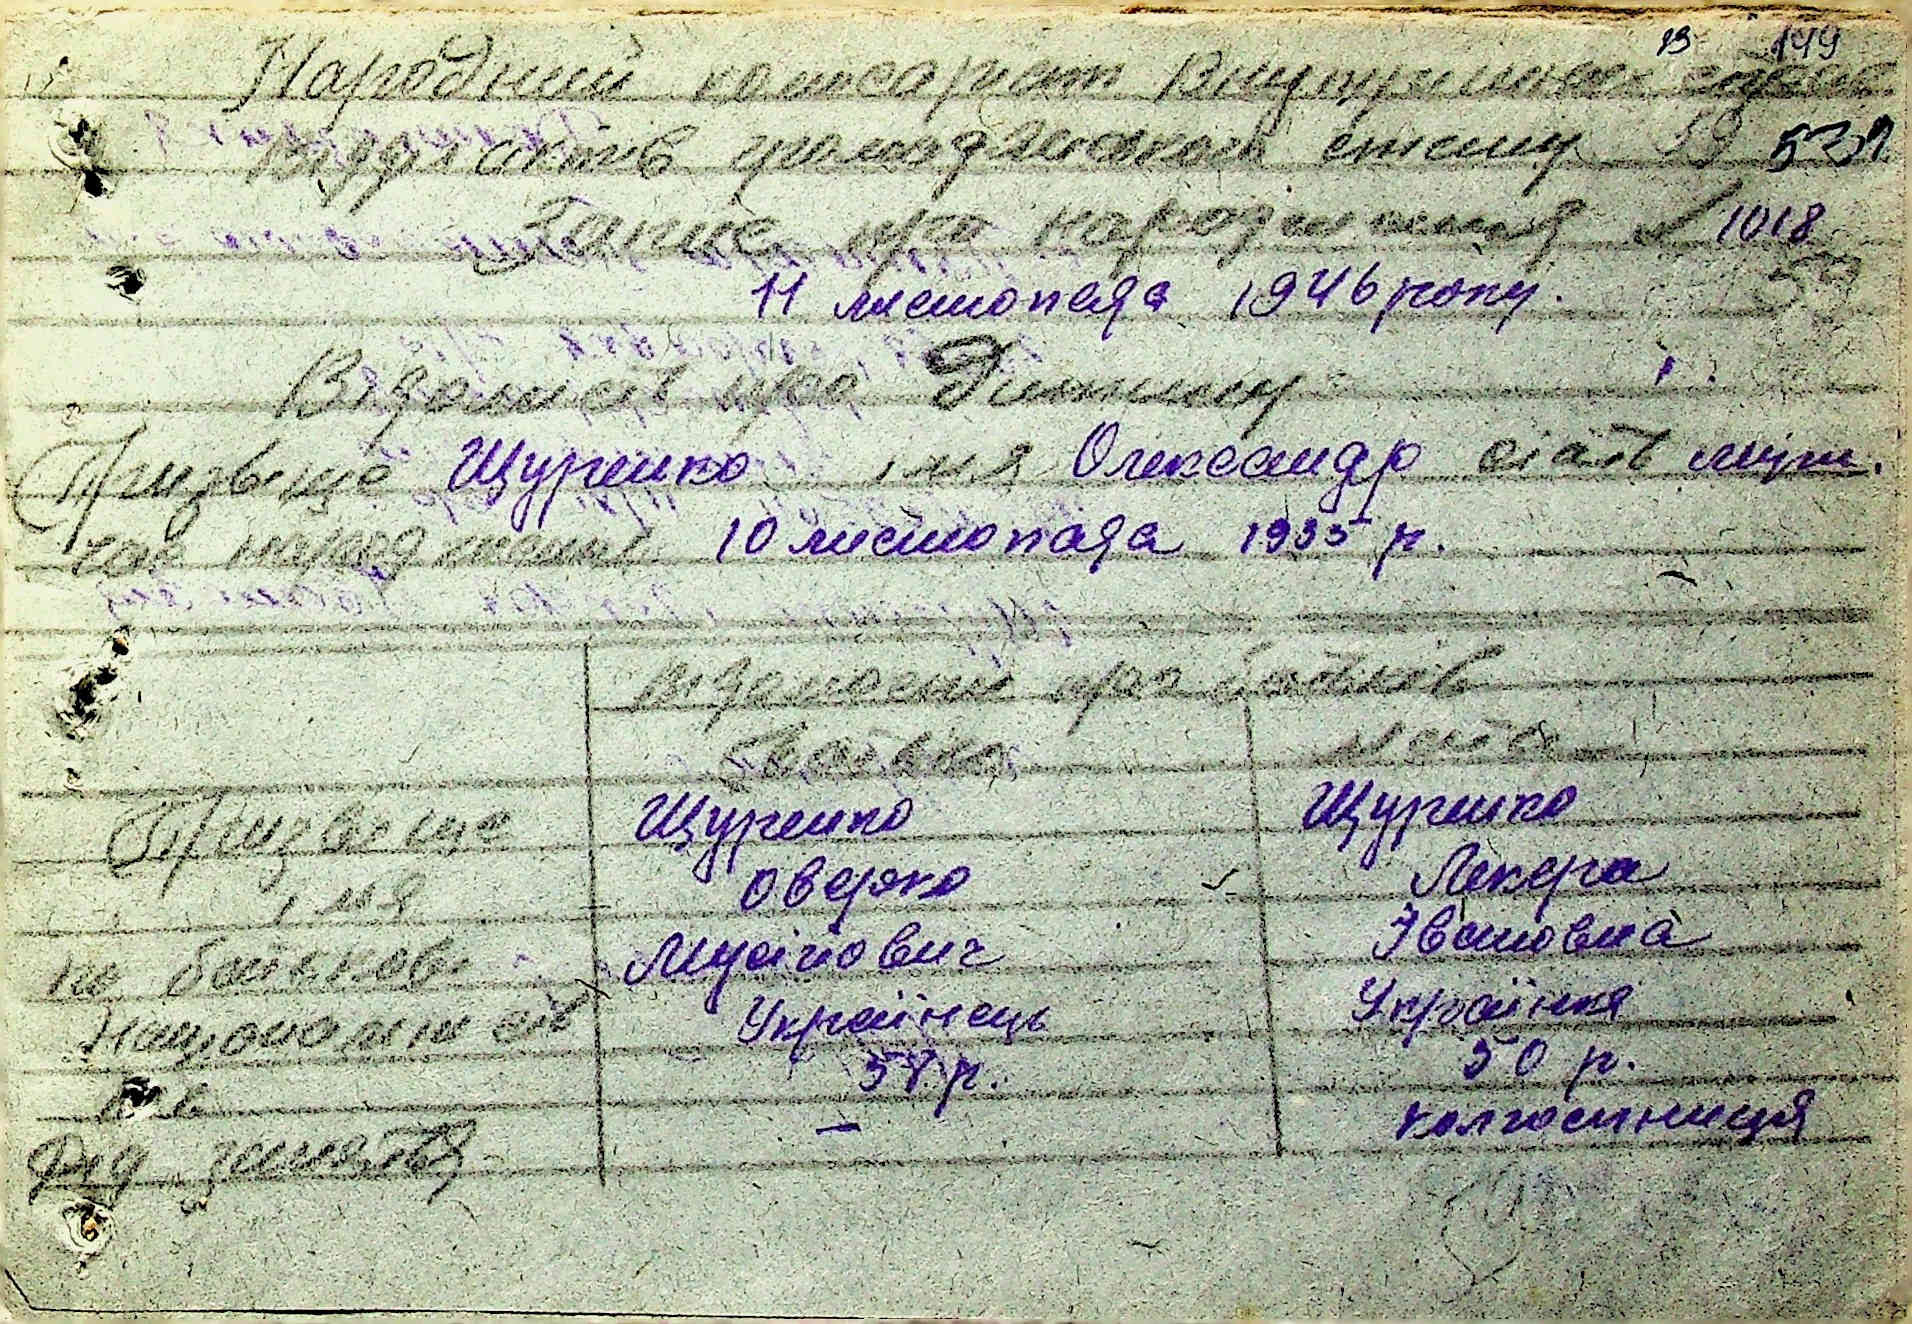 13 149
Народний комисариат внутрішніх справ
Відділ актів громадянского стану 59 532
Запис про народження № 1018
59
11 листопада 1946 року.
Відомості про дитину
Призвеще Щуренко імя Олександр стать муж.
час народження 10 листопада 1935 р.
відомости про батьків
батько мати
Призвеще Щуренко Щуренко
імя Оверко Лекера
по батькові Мусійович Івановна
Національність Українець Українка
вік 58 р. 50 р.
Рід заняття — колгоспниця